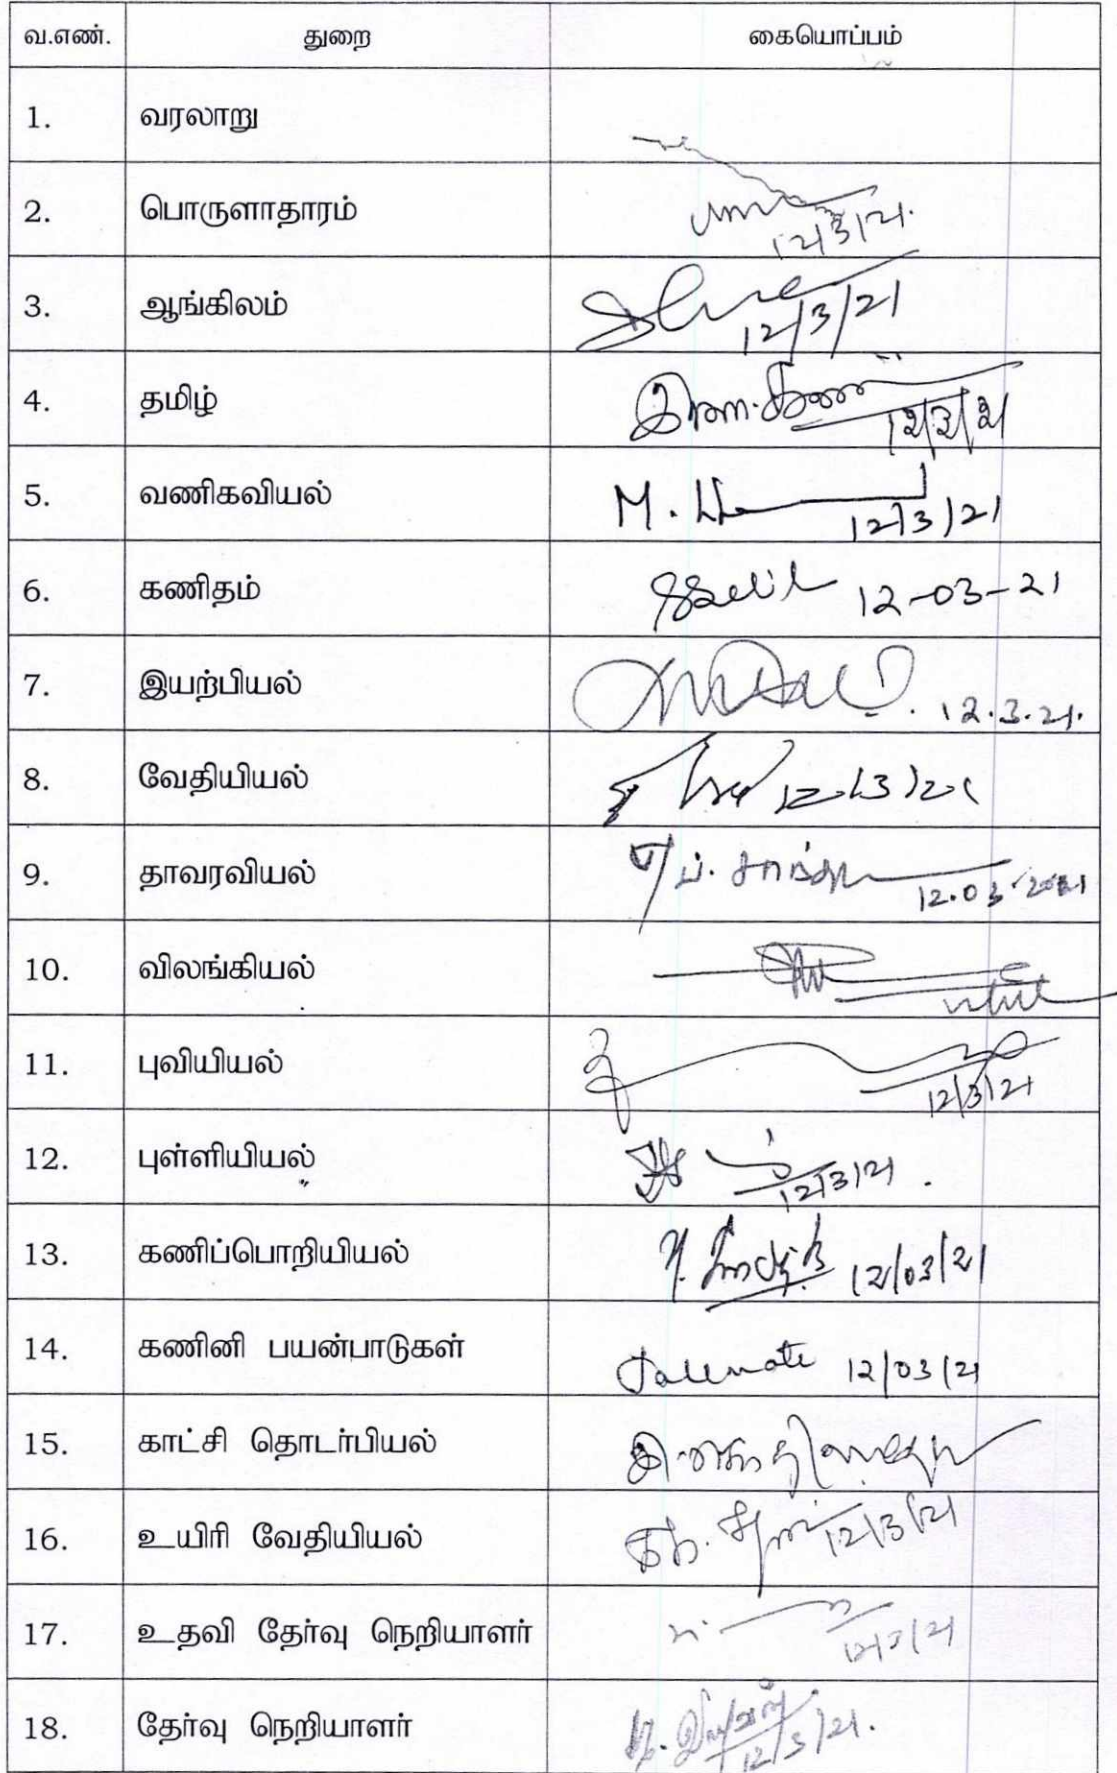 வ.எண். துறை கையொப்பம்
1. வரலாறு
2. பொருளாதாரம் 12/3/21.
3. ஆங்கிலம் 12/3/21
4. தமிழ் 12/3/21
5. வணிகவியல் M. 12/3/21
6. கணிதம் 12-03-21
7. இயற்பியல் 12.3.21.
8. வேதியியல் 12/3/21
9. தாவரவியல் 12.03.2021
10. விலங்கியல்
11. புவியியல் 12/3/21
12. புள்ளியியல் 12/3/21.
13. கணிப்பொறியியல் 12/03/21
14. கணினி பயன்பாடுகள் 12/03/21
15. காட்சி தொடர்பியல்
16. உயிரி வேதியியல் 12/3/21
17. உதவி தேர்வு நெறியாளர் 12/3/21
18. தேர்வு நெறியாளர் 12/3/21.